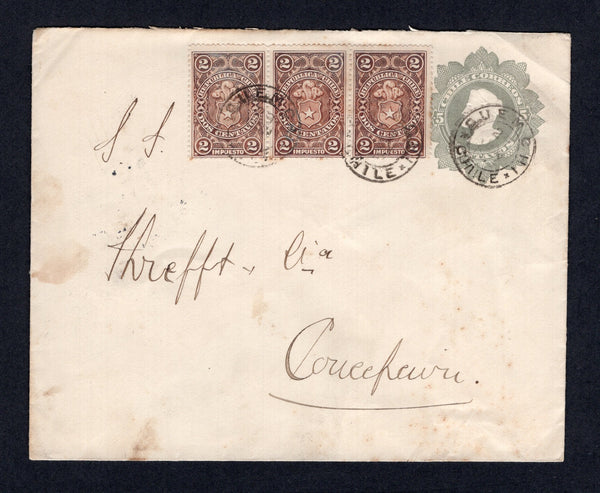 2 2 2 2 2 2
REPUBLICA DE CHILE REPUBLICA DE CHILE REPUBLICA DE CHILE
DOS CENTAVOS DOS CENTAVOS DOS CENTAVOS
2 2 2 2 2 2
IMPUESTO IMPUESTO IMPUESTO
CHILE CORREOS
CENTAVOS
CHILE
CHILE
S. S.
Threfft y Cia
Concepcion.